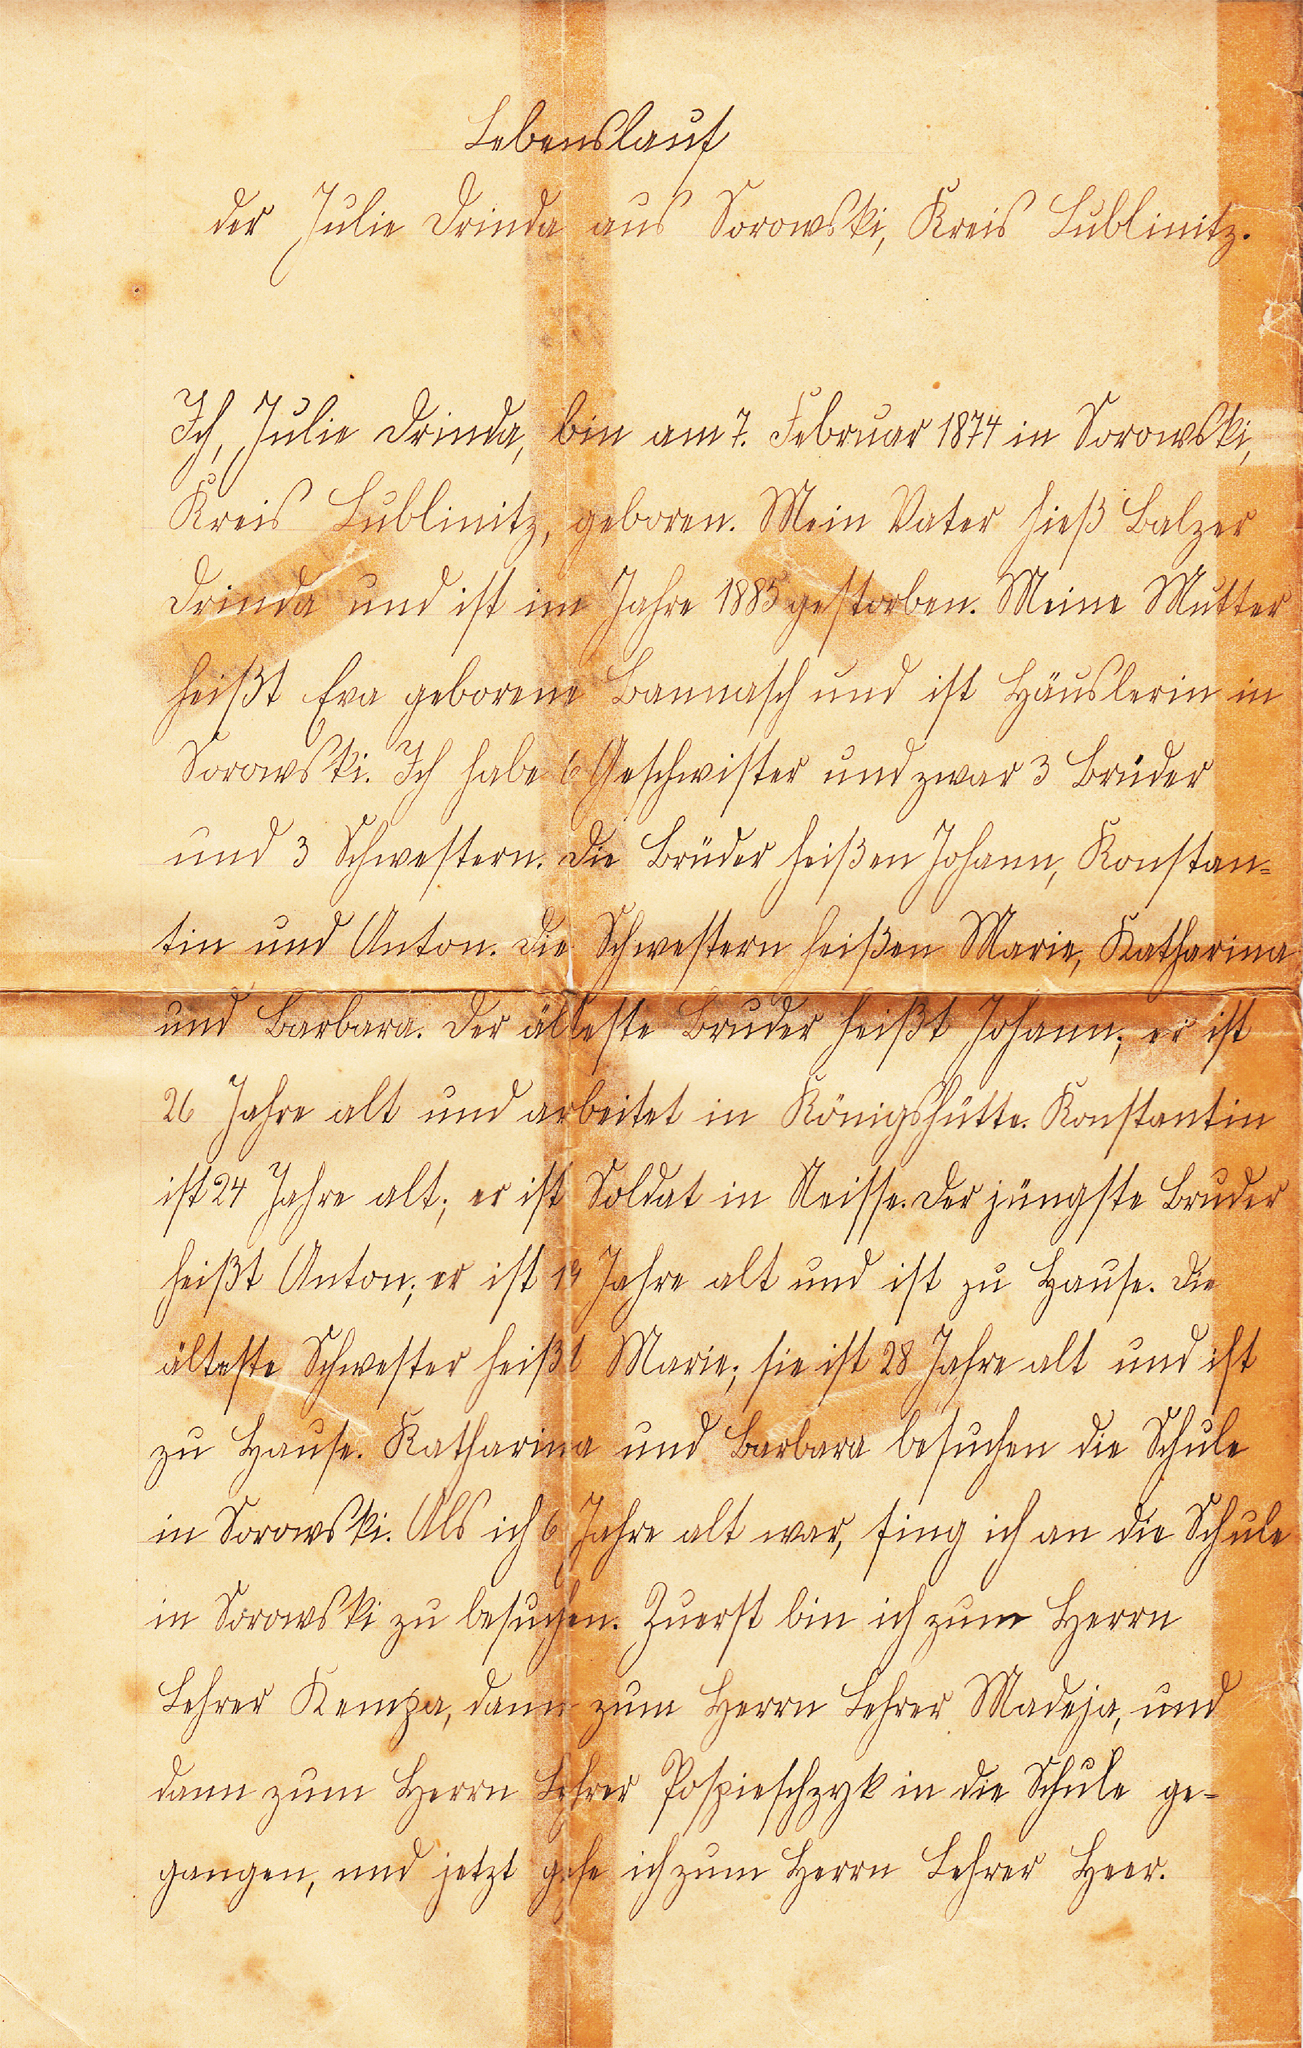 Lebenslauf
der Julie Drinda aus Sorowski, Kreis Lublinitz.
Ich, Julie Drinda, bin am 7. Februar 1874 in Sorowski,
Kreis Lublinitz, geboren. Mein Vater hieß Balzer
Drinda und ist im Jahre 1885 gestorben. Meine Mutter
heißt Eva geborene Bannasch und ist Häuslerin in
Sorowski. Ich habe 6 Geschwister und zwar 3 Brüder
und 3 Schwestern. Die Brüder heißen Johann, Konstan-
tin und Anton. Die Schwestern heißen Marie, Katharina
und Barbara. Der älteste Bruder heißt Johann; er ist
26 Jahre alt und arbeitet in Königshütte. Konstantin
ist 24 Jahre alt; er ist Soldat in Neisse. Der jüngste Bruder
heißt Anton; er ist 19 Jahre alt und ist zu Hause. Die
älteste Schwester heißt Marie; sie ist 28 Jahre alt und ist
zu Hause. Katharina und Barbara besuchen die Schule
in Sorowski. Als ich 6 Jahre alt war, fing ich an die Schule
in Sorowski zu besuchen. Zuerst bin ich zum Herrn
Lehrer Kempa, dann zum Herrn Lehrer Madeja, und
dann zum Herrn Lehrer Pospieschzyk in die Schule ge-
gangen, und jetzt gehe ich zum Herrn Lehrer Heer.